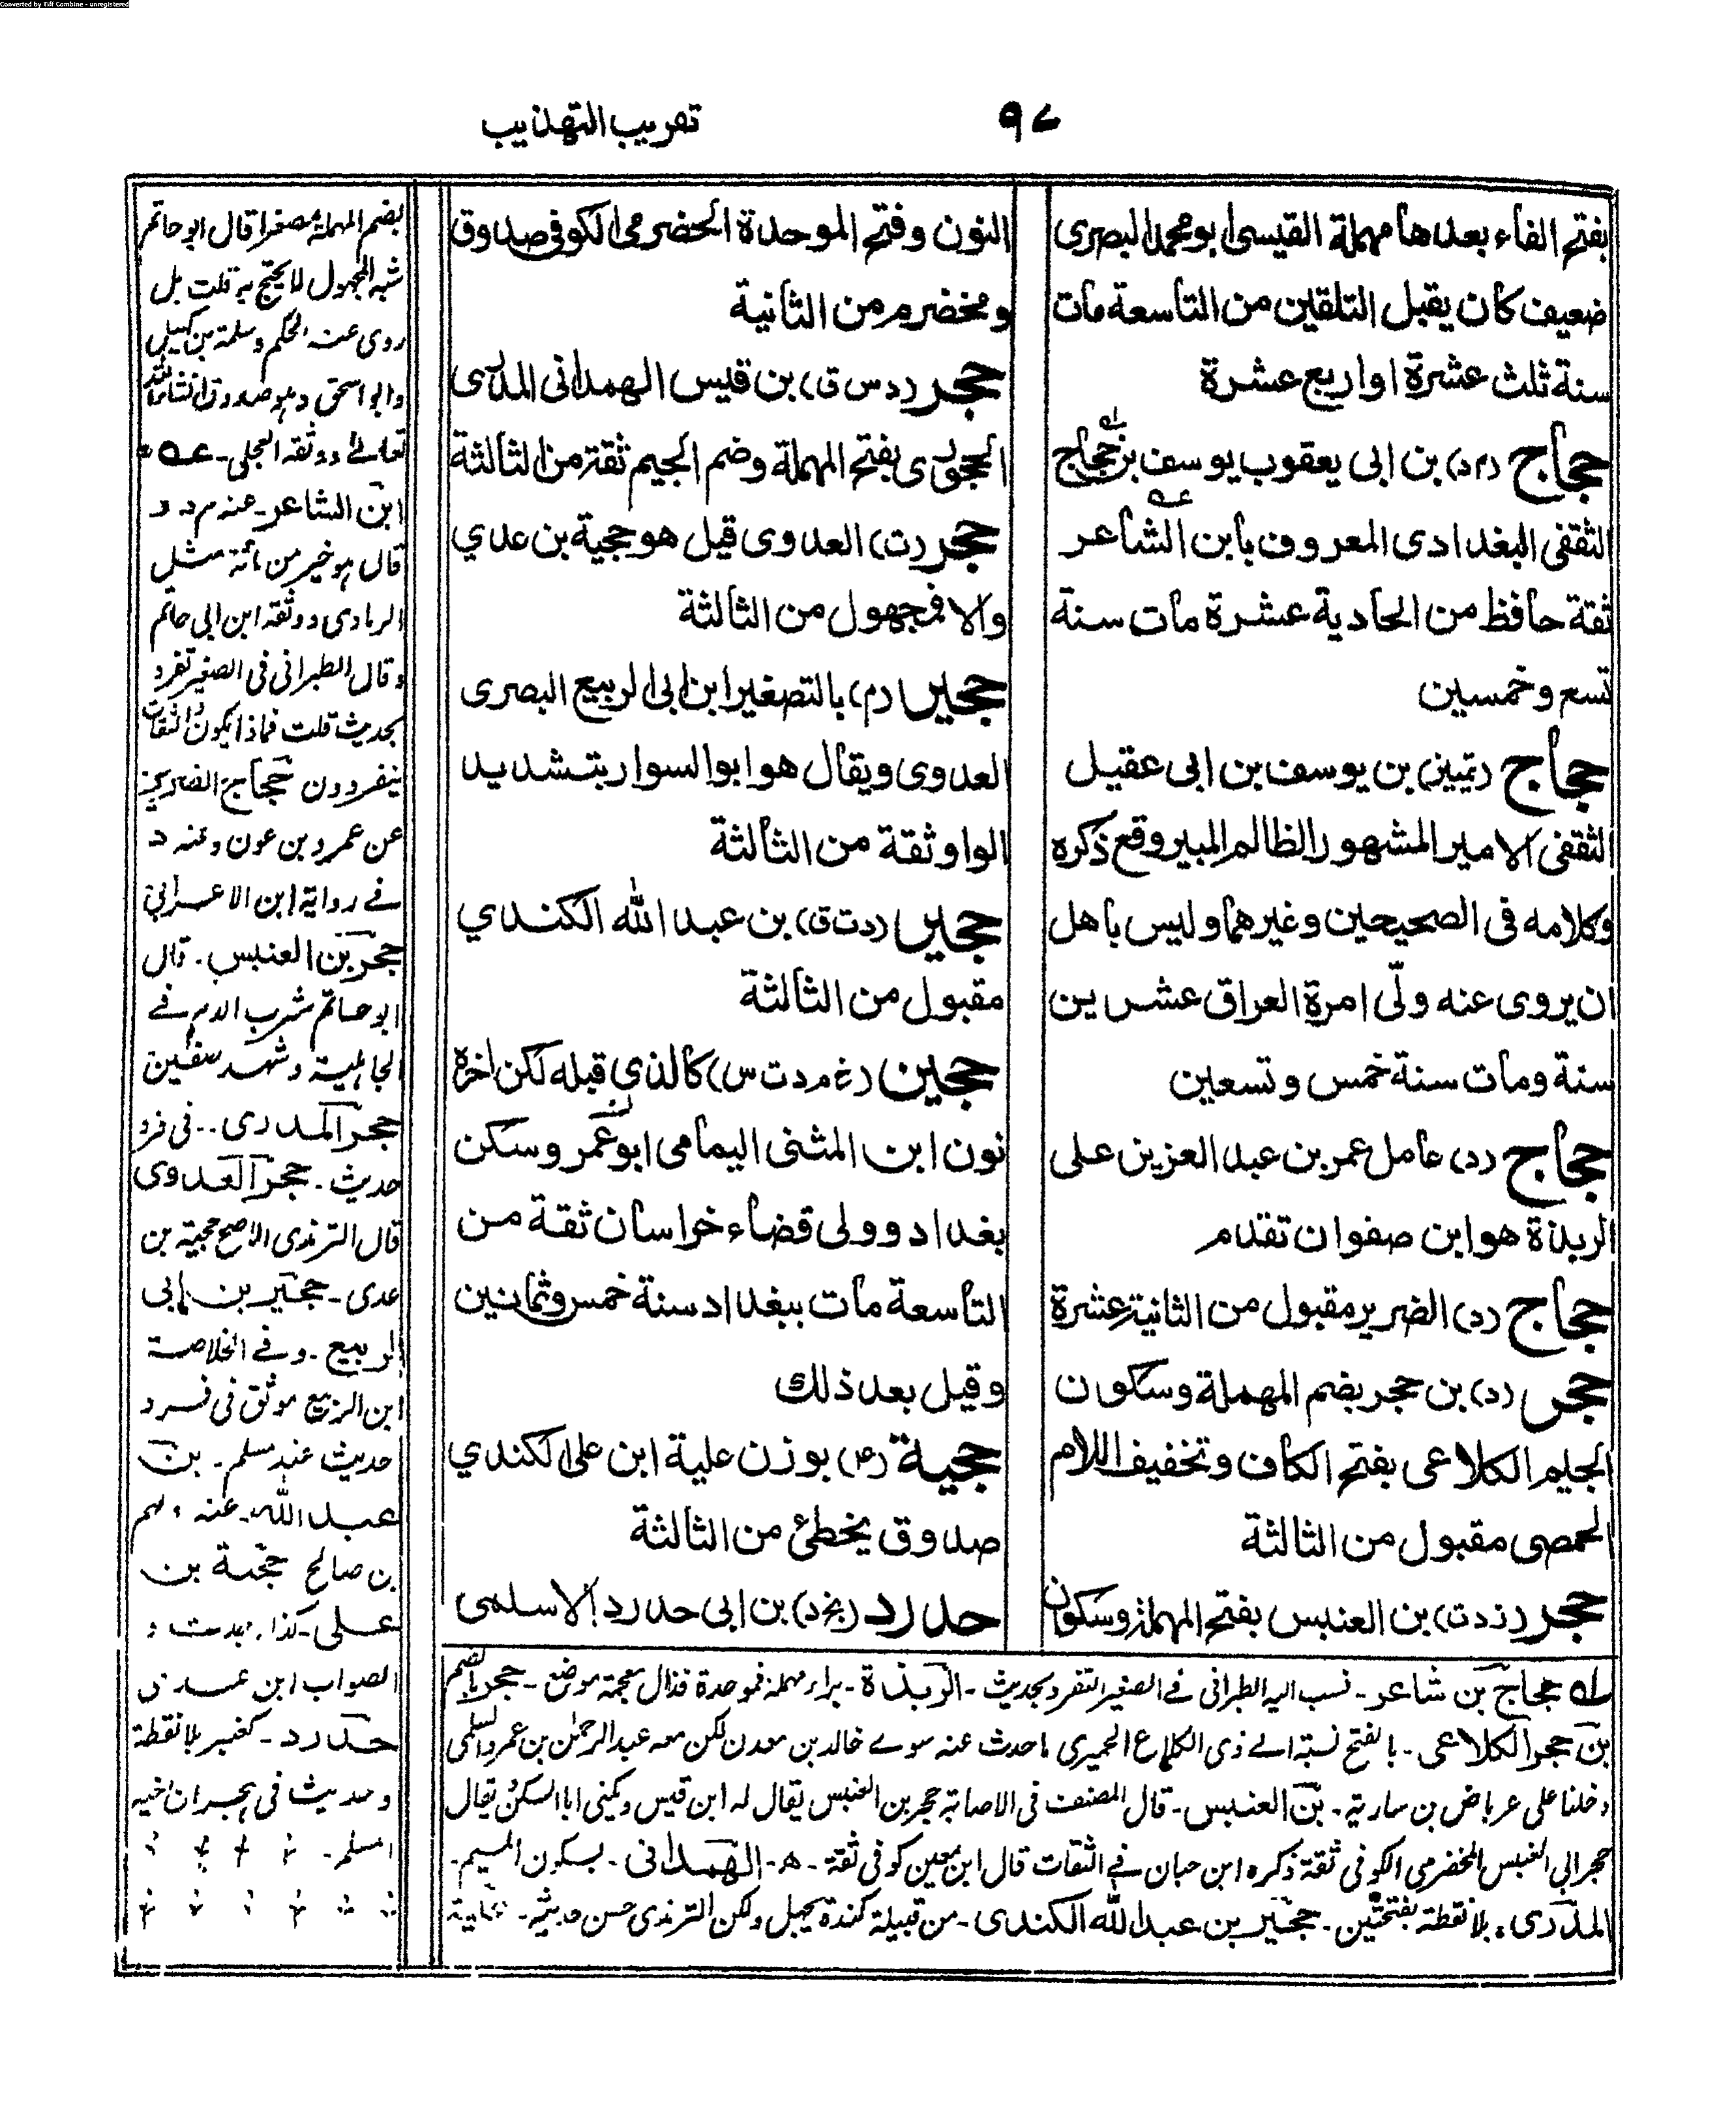 Converted by Tiff Combine - unregistered
٩٧
تقريب التهذيب
بفتح الفاء بعدها مهملة القيسى ابو محمد البصرى
ضعيف كان يقبل التلقين من التاسعة مات
سنة ثلث عشرة او اربع عشرة
حجاج (م د) بن ابى يعقوب يوسف بن حجاج
الثقفى البغدادى المعروف بابن الشاعر
ثقة حافظ من الحادية عشرة مات سنة
تسع وخمسين
حجاج (تمييز) بن يوسف بن ابى عقيل
الثقفى الامير المشهور الظالم المبير وقع ذكره
وكلامه فى الصحيحين وغيرهما وليس باهل
ان يروى عنه ولّى امرة العراق عشرين
سنة ومات سنة خمس وتسعين
حجاج (د) عامل عمر بن عبد العزيز على
الربذة هو ابن صفوان تقدم
حجاج (د) الضرير مقبول من الثانية عشرة
حجر (د) بن حجر بضم المهملة وسكون
الجيم الكلاعى بفتح الكاف وتخفيف اللام
الحمصى مقبول من الثالثة
حجر (ز د ت) بن العنبس بفتح المهملة وسكون
النون وفتح الموحدة الحضرمى الكوفى صدوق
ومخضرم من الثانية
حجر (د س ق) بن قيس الهمدانى المدرى
الحجورى بفتح المهملة وضم الجيم ثقة من الثالثة
حجر (ت) العدوى قيل هو حجية بن عدي
والا فمجهول من الثالثة
حجير (م) بالتصغير ابن ابى الربيع البصرى
العدوى ويقال هو ابو السوار بتشديد
الواو ثقة من الثالثة
حجير (د ت ق) بن عبد الله الكندي
مقبول من الثالثة
حجين (خ م د ت س) كالذي قبله لكن اخره
نون ابن المثنى اليمامى ابو عمر وسكن
بغداد وولى قضاء خراسان ثقة من
التاسعة مات ببغداد سنة خمس وثمانين
وقيل بعد ذلك
حجية (٤) بوزن علية ابن على الكندي
صدوق يخطئ من الثالثة
حدرد (بخ د) بن ابى حدرد الاسلمى
له حجاج بن شاعر - نسب اليه الطبرانى فے الصغير التفرد بحديث - الربذة - براء مهملة فموحدة فذال معجمة موضع - حجر بالضم
بن حجر الكلاعى - بالفتح نسبة الے ذى الكلاع الحميرى ما حدث عنه سوے خالد بن معدن لكن معه عبد الرحمٰن بن عمرو السلمى
دخلنا على عرباض بن سارية - بن العنبس - قال المصنف فى الاصابة حجر بن العنبس يقال له ابن قيس ويكنى ابا السكن يقال
حجر ابى العنبس الحضرمى الكوفى ثقة ذكره ابن حبان فے الثقات قال ابن معين كوفى ثقة - ھ - الهمدانى - بسكون الميم -
المدرى، بلا نقطة بفتحتين - حجير بن عبد الله الكندى - من قبيلة كندة يجهل ولكن الترمذى حسن حديثه -
بضم المهملة مصغرا قال ابو حاتم
شبه المجهول لا يحتج به قلت بل
روى عنه الحكم وسلمة بن كهيل
وابو اسحق وهو صدوق ان شاء الله
تعالے ووثقه العجلى - عــه
ابن الشاعر - عنه م د و
قال هو خير من مائة مثل
الرمادى ووثقه ابن ابى حاتم
وقال الطبرانى فى الصغير تفرد
بحديث قلت فماذا يكون الثقات
ينفردون حجاج الضرير
عن عمرو بن عون وعنه د
فے رواية ابن الاعرابى
حجر بن العنبس - قال
ابو حاتم شرب الدم فے
الجاهلية وشهد صفين
حجر المدرى - فى فرد
حديث - حجر العدوى
قال الترمذى الاصح حجية بن
عدى - حجير بن ابى
الربيع - وفے الخلاصة
ابن الربيع موثق فى فرد
حديث عند مسلم - بن
عبد الله - عنه دلهم
بن صالح حجية بن
على - كذا
الصواب ابن عدى
حدرد - كجعفر بلا نقطة
وحديث فى هجران اخيه
المسلم -